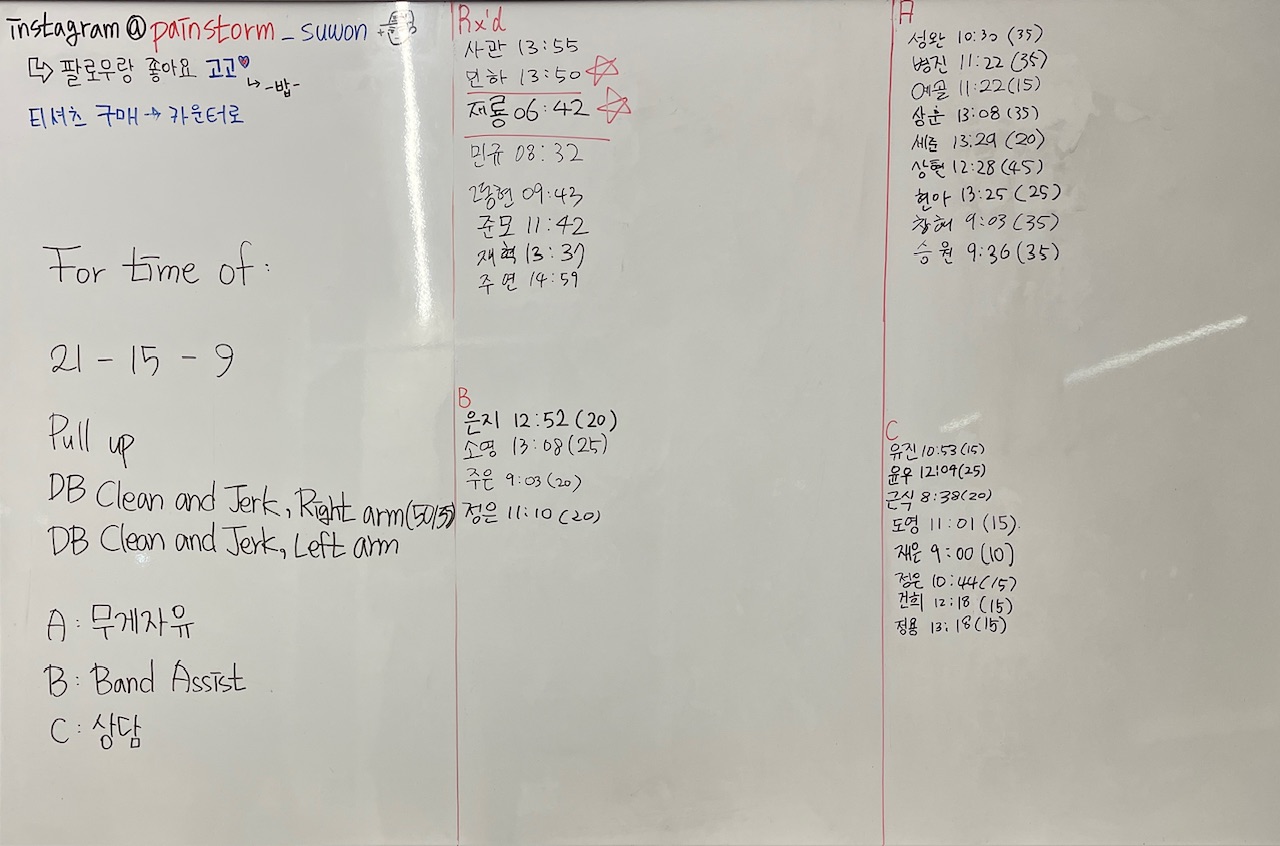 instagram@painstorm_suwon
팔로우랑 좋아요 고고
-밥-
티셔츠 구매→ 카운터로
For time of:
21 - 15 - 9
Pull up
DB Clean and Jerk, Right arm(50/35)
DB Clean and Jerk, Left arm
A: 무게자유
B: Band Assist
C: 상담
Rx'd
사관 13:55
민하 13:50
제룡 06:42
민규 08:32
동현 09:43
준모 11:42
재혁 13:37
주연 14:59
B
은지 12:52(20)
소영 13:08(25)
주은 9:03(20)
정은 11:10(20)
A
성완 10:30(35)
병진 11:22(35)
예솔 11:22(15)
상훈 13:08(35)
세준 13:29(20)
상현 12:28(45)
현아 13:25(25)
창해 9:03(35)
승원 9:36(35)
C
유진 10:53(15)
윤우 12:09(25)
근식 8:38(20)
도영 11:01(15).
재은 9:00(10)
정은 10:44(15)
건희 12:18(15)
정용 13:18(15)